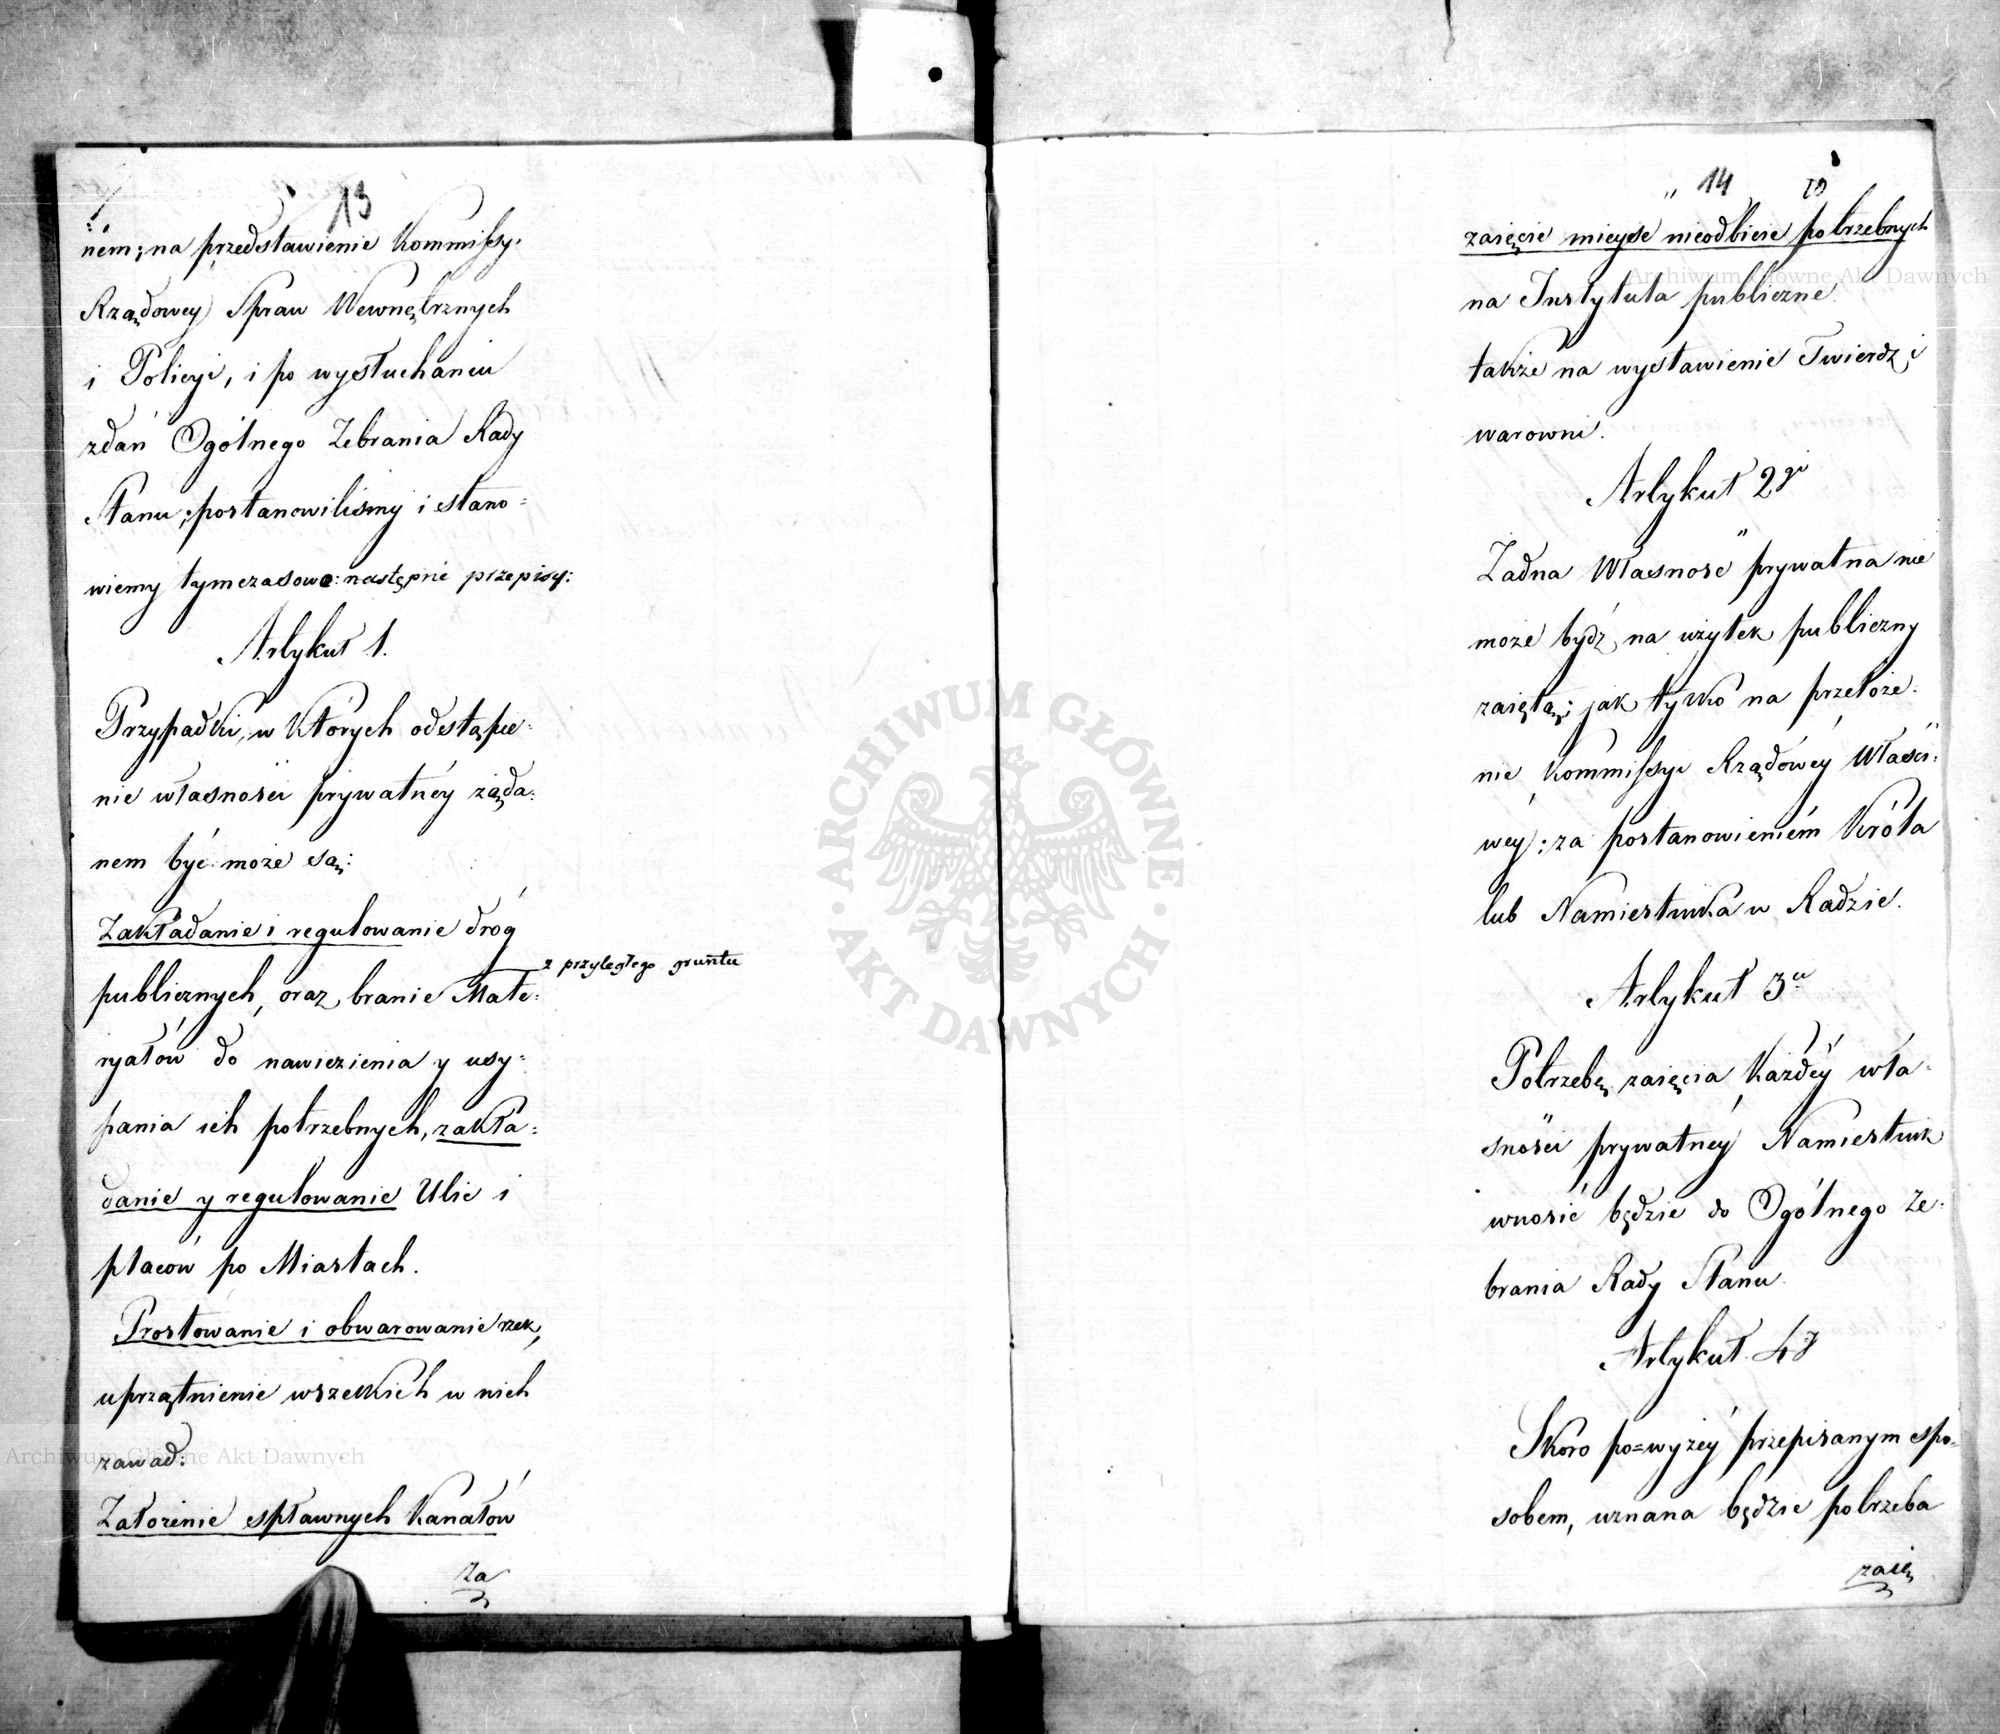 13
ném; na przedstawienie Kommissyi
Rządowey Spraw Wewnętrznych
i Policyi, i po wysłuchaniu
zdań Ogólnego Zebrania Rady
Stanu; postanowiliśmy i stano=
wiemy tymczasowe: następne przepisy:
Artykuł 1.
Przypadki, w których odstąpie=
nie własności prywatnéy żąda=
nem być może są:
Zakładanie i regulowanie dróg
publicznych, oraz branie Mate=
z przyległego gruntu
ryałów do nawiezienia y usy=
pania ich potrzebnych, zakła=
danie y regulowanie Ulic i
placów po Miastach.
Prostowanie i obwarowanie rzek,
uprzątnienie wszelkich w nich
zawad:
Założenie spławnych Kanałów
za
14
10
zaięcie mieysc nieodbicie potrzebnych
na Instytuta publiczne
także na wystawienie Twierdz i
warowni.
Artykuł 2gi
Żadna Własność prywatna nie
może bydź na użytek publiczny
zaiętą; jak tylko na przełoże=
nie Kommissyi Rządówéy Właści=
wéy: za postanowieniém Króla
lub Namiestnika w Radzie.
Artykuł 3ci
Potrzebę zaięcia Każdéy wła=
sności prywatnéy Namiestnik
wnosić będzie do Ogólnego Ze=
brania Rady Stanu
Artykuł 4y
Skoro po=wyżéy przepisanym spo=
sobem, uznana będzie potrzeba
zaię
ARCHIWUM GŁÓWNE
AKT DAWNYCH
Archiwum Główne Akt Dawnych
Archiwum Główne Akt Dawnych